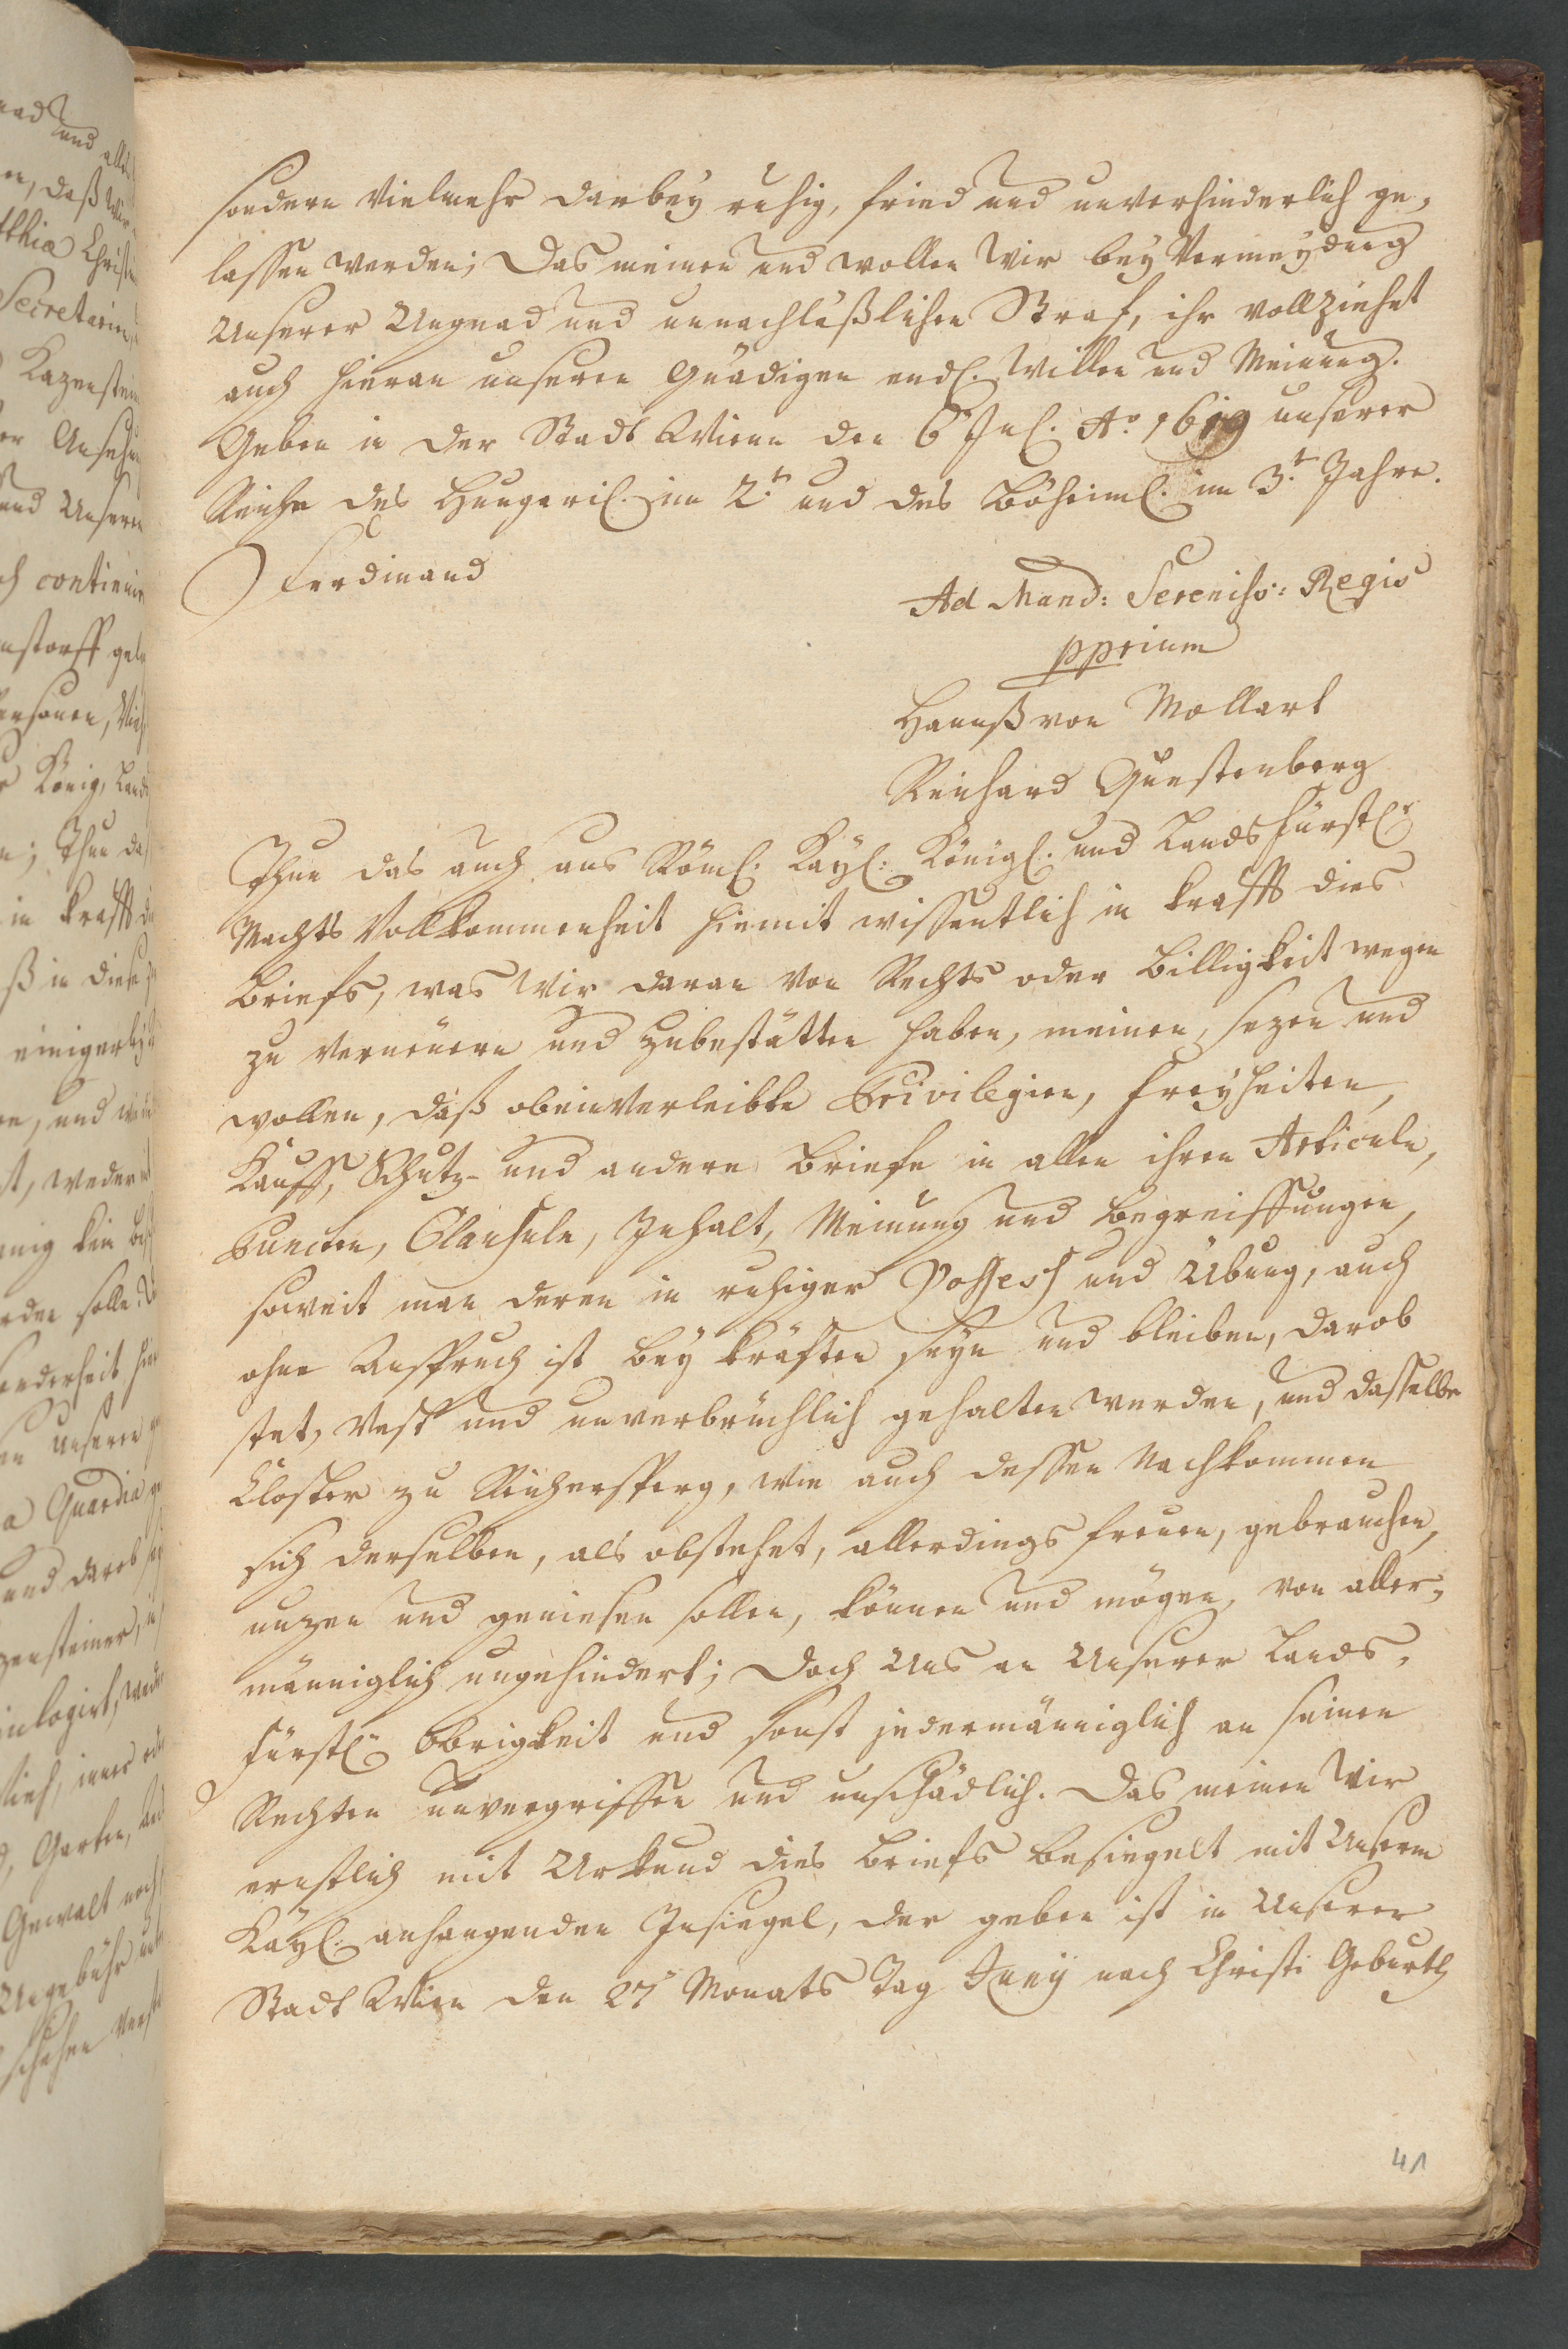 sondern Vielmehr darbey ruhig, fried und unverhinderlich ge-
lassen werden; Das meinen und wollen Wir bey Vermeydung
Unserer Ungnad und unnachläßlichen Straf, ihr vollziehet
auch hieran unseren Gnädigen endl. Willen und Meinung.
Geben in der Stadt Wienn den 6t Jul. Ao. 1619 unserer
Reiche des Hungaril. im 2.t und des Böheiml. im 3.t Jahre.
Ferdinand
Ad Mand: Sereniss: Regis
pprium
Hannß von Mollart
Reichard Questenberg
Thun das auch aus Röml. Kayl: Königl. und Landsfürstlr
Machts Vollkommenheit hiemit wissentlich in krafft dies
Briefs, was Wir daran von Rechts oder Billigkeit wegen
zu verneuern und zubestätten haben, meinen, sezen und
wollen, daß obeinverleibte Privilegien, Freyheiten,
Kauff, Schutz- und andere Briefe in allen ihren Articuln,
Puncten, Clausuln, Inhalt, Meinung und Begreiffungen,
soweit man deren in ruhiger Possess und Übung, auch
ohne Anspruch ist bey kräften seyn und bleiben, darob
stet, Vest und unverbrüchlich gehalten werden, und dasselbe
Closter zu Reichersperg, wie auch dessen Nachkommen
sich derselben, als obstehet, allerdings freuen, gebrauchen,
nuzen und geniesen sollen, können und mögen, von aller-
männiglich ungehindert; Doch Uns an Unserer Lands-
fürstlr Obrigkeit und sonst jedermänniglich an seinen
Rechten unvergriffen und unschädlich. Das meinen Wir
ernstlich mit Urkund dies Briefs besiegelt mit Unserm
Kayl. anhangenden Insiegel, der geben ist in Unserer
Stadt Wien den 27t Monats Tag Junij nach Christi Geburth
41